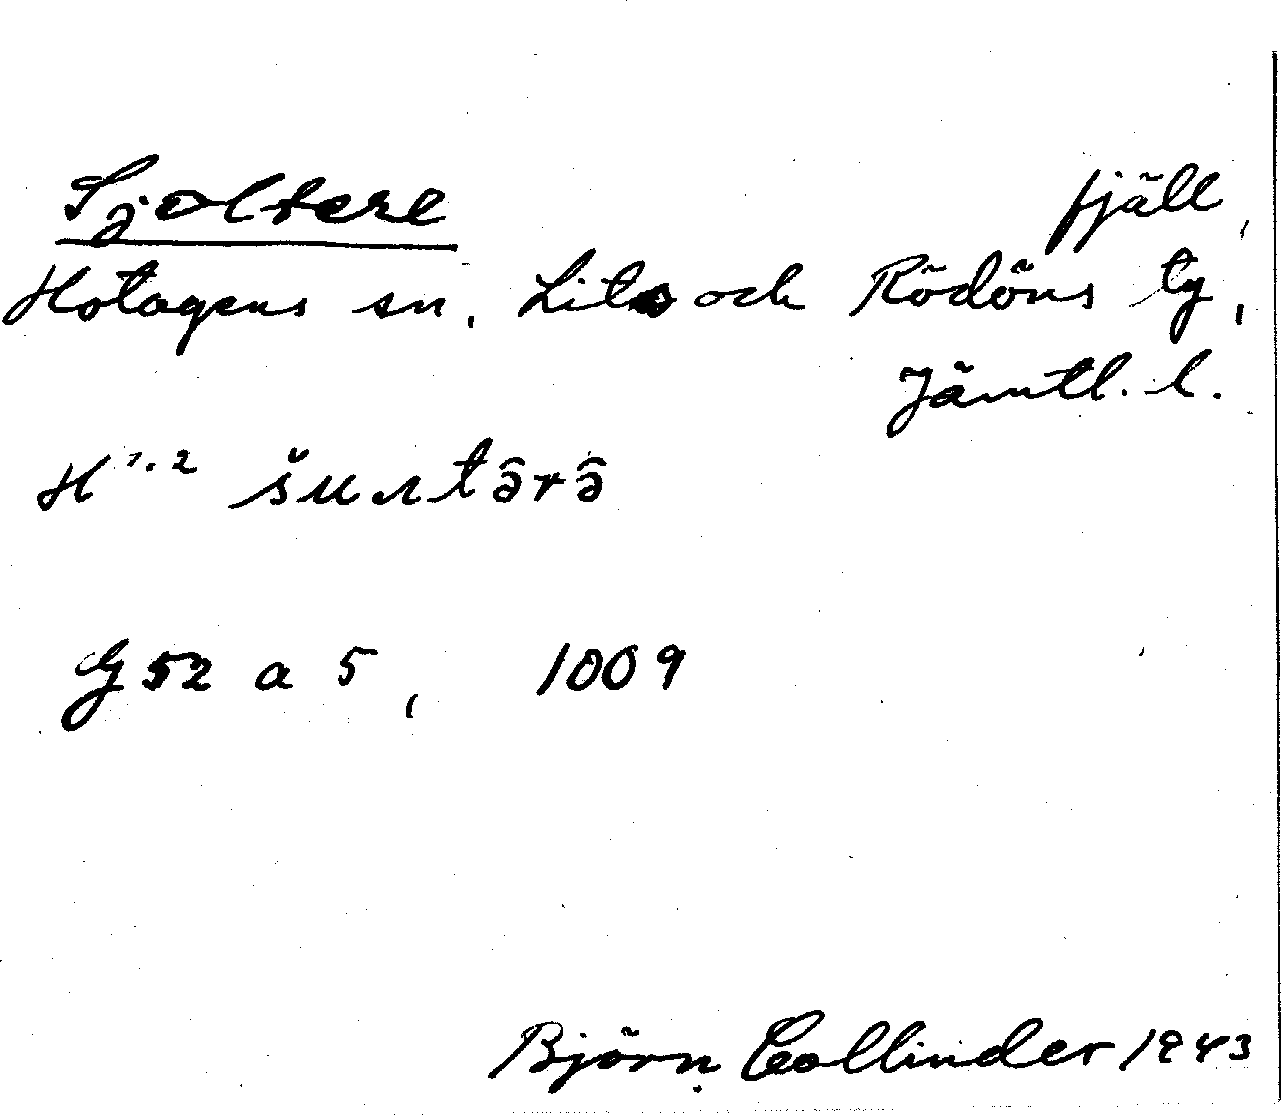 Sjoltere fjäll,
Hotagens sn, Lits och Rödöns tg,
Jämtl. l.
H 1.2 šuʌtə̂rə̂
G 52 a 5, 1009
Björn Collinder 1943